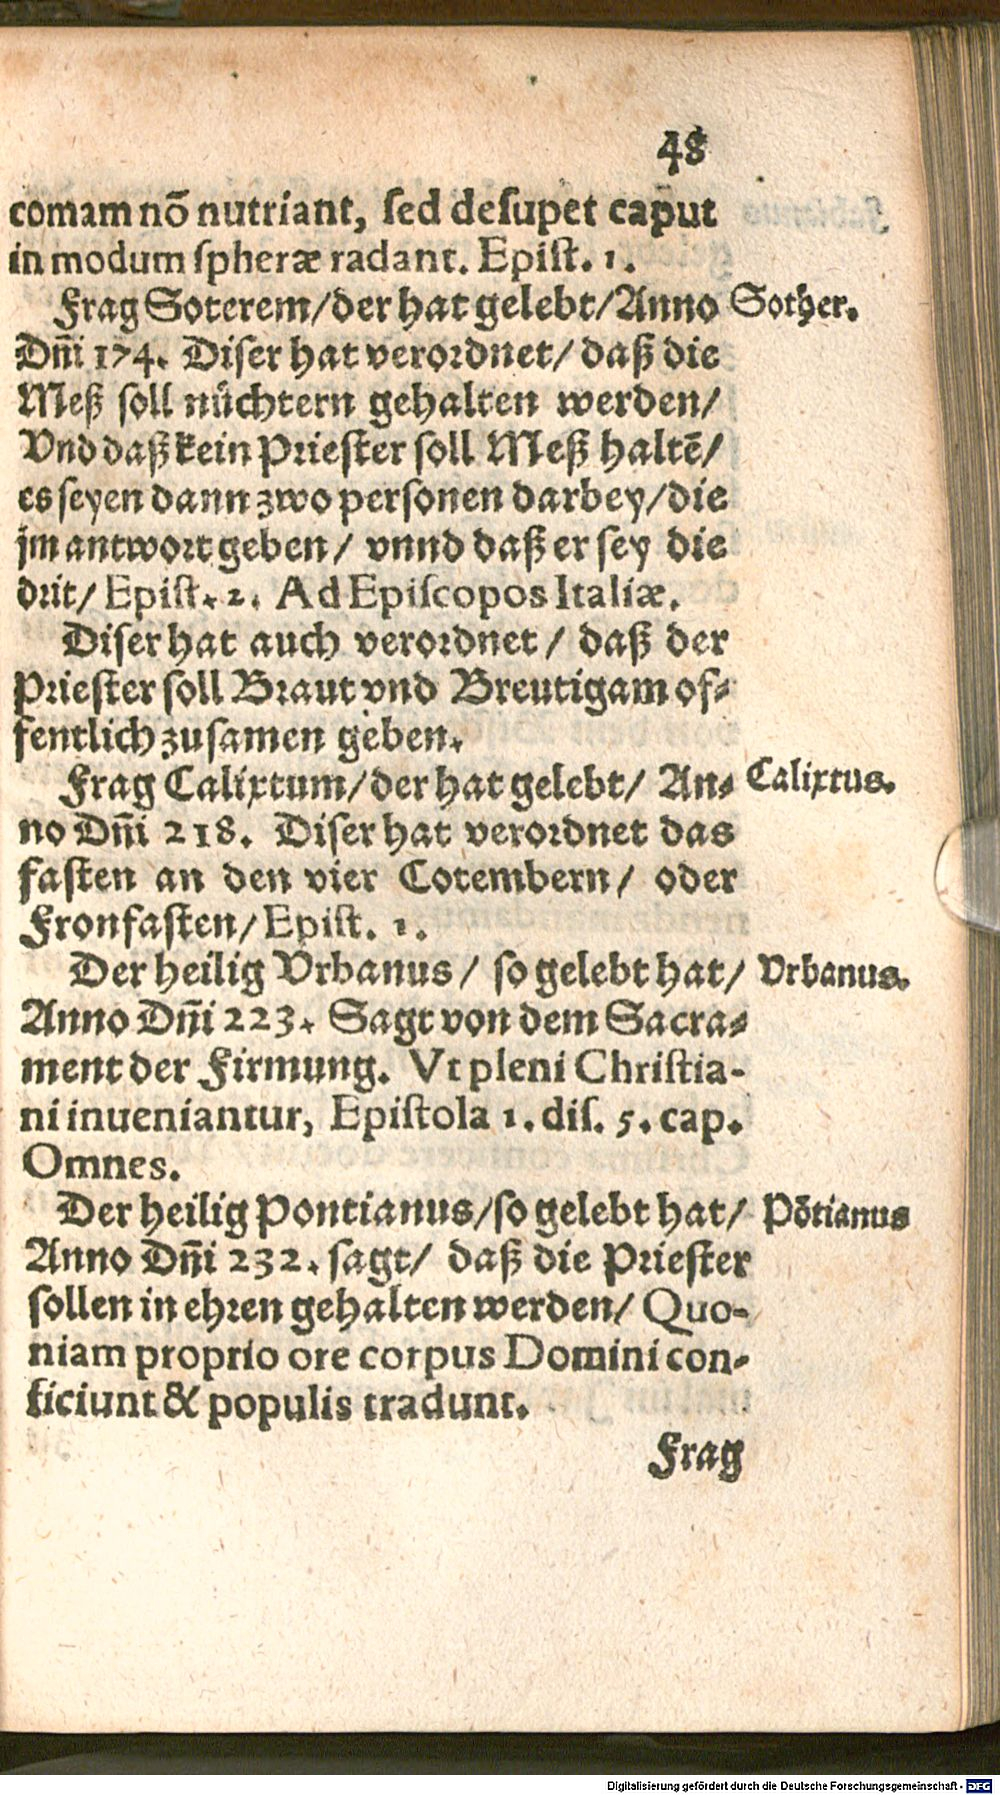 48
comam nō nutriant, sed desupet caput
in modum spheræ radant. Epist. 1.
Frag Soterem/der hat gelebt/Anno
Sother.
Dn̄i 174. Diser hat verordnet/ daß die
Meß soll nüchtern gehalten werden/
Vnd daß kein Priester soll Meß haltē/
es seyen dann zwo personen darbey/die
jm antwort geben/ vnnd daß er sey die
drit/ Epist. 2. Ad Episcopos Italiæ.
Diser hat auch verordnet/ daß der
Priester soll Braut vnd Breutigam of-
fentlich zusamen geben.
Frag Calixtum/der hat gelebt/ An-
Calixtus.
no Dn̄i 218. Diser hat verordnet das
fasten an den vier Cotembern/ oder
Fronfasten/ Epist. 1.
Der heilig Vrbanus/ so gelebt hat/
Vrbanus.
Anno Dn̄i 223. Sagt von dem Sacra-
ment der Firmung. Vt pleni Christia-
ni inueniantur, Epistola 1. dis. 5. cap.
Omnes.
Der heilig Pontianus/so gelebt hat/
Pōtianus
Anno Dn̄i 232. sagt/ daß die Priester
sollen in ehren gehalten werden/ Quo-
niam proprio ore corpus Domini con-
ficiunt & populis tradunt.
Frag
Digitalisierung gefördert durch die Deutsche Forschungsgemeinschaft - DFG